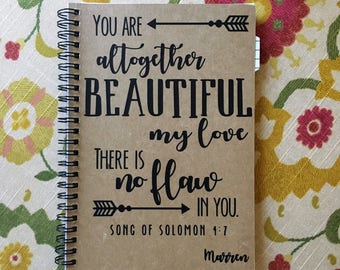 YOU ARE
altogether
BEAUTIFUL
my love
THERE IS
no flaw
IN YOU.
SONG OF SOLOMON 4:7
Marren